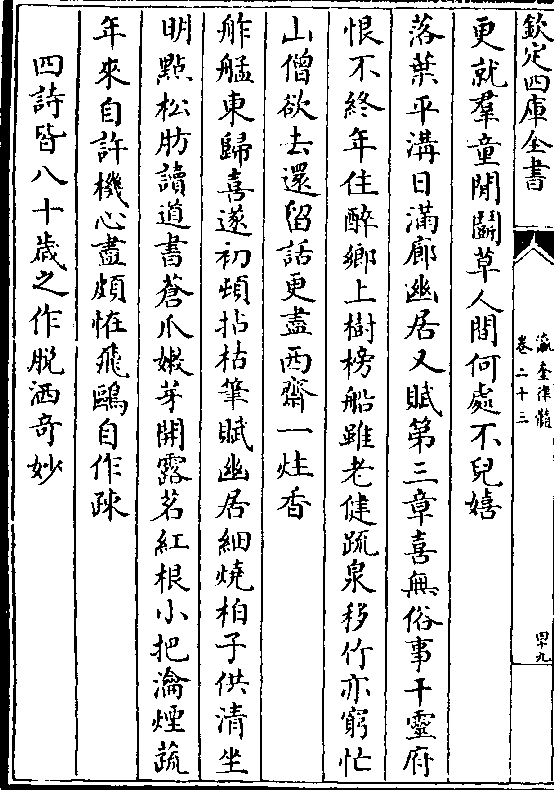 欽定四庫全書
瀛奎律髓
卷二十三
四十九
更就羣童閒鬭草人間何處不兒嬉
落葉平溝日滿廊幽居又賦第三章喜無俗事干靈府
恨不終年住醉鄉上樹榜船雖老健疏泉移竹亦窮忙
山僧欲去還留話更盡西齋一炷香
舴艋東歸喜遂初頻拈枯筆賦幽居細燒柏子供清坐
明點松肪讀道書蒼爪嫩芽開露茗紅根小把瀹煙蔬
年來自許機心盡頗恠飛鷗自作疎
四詩皆八十歲之作脫洒奇妙